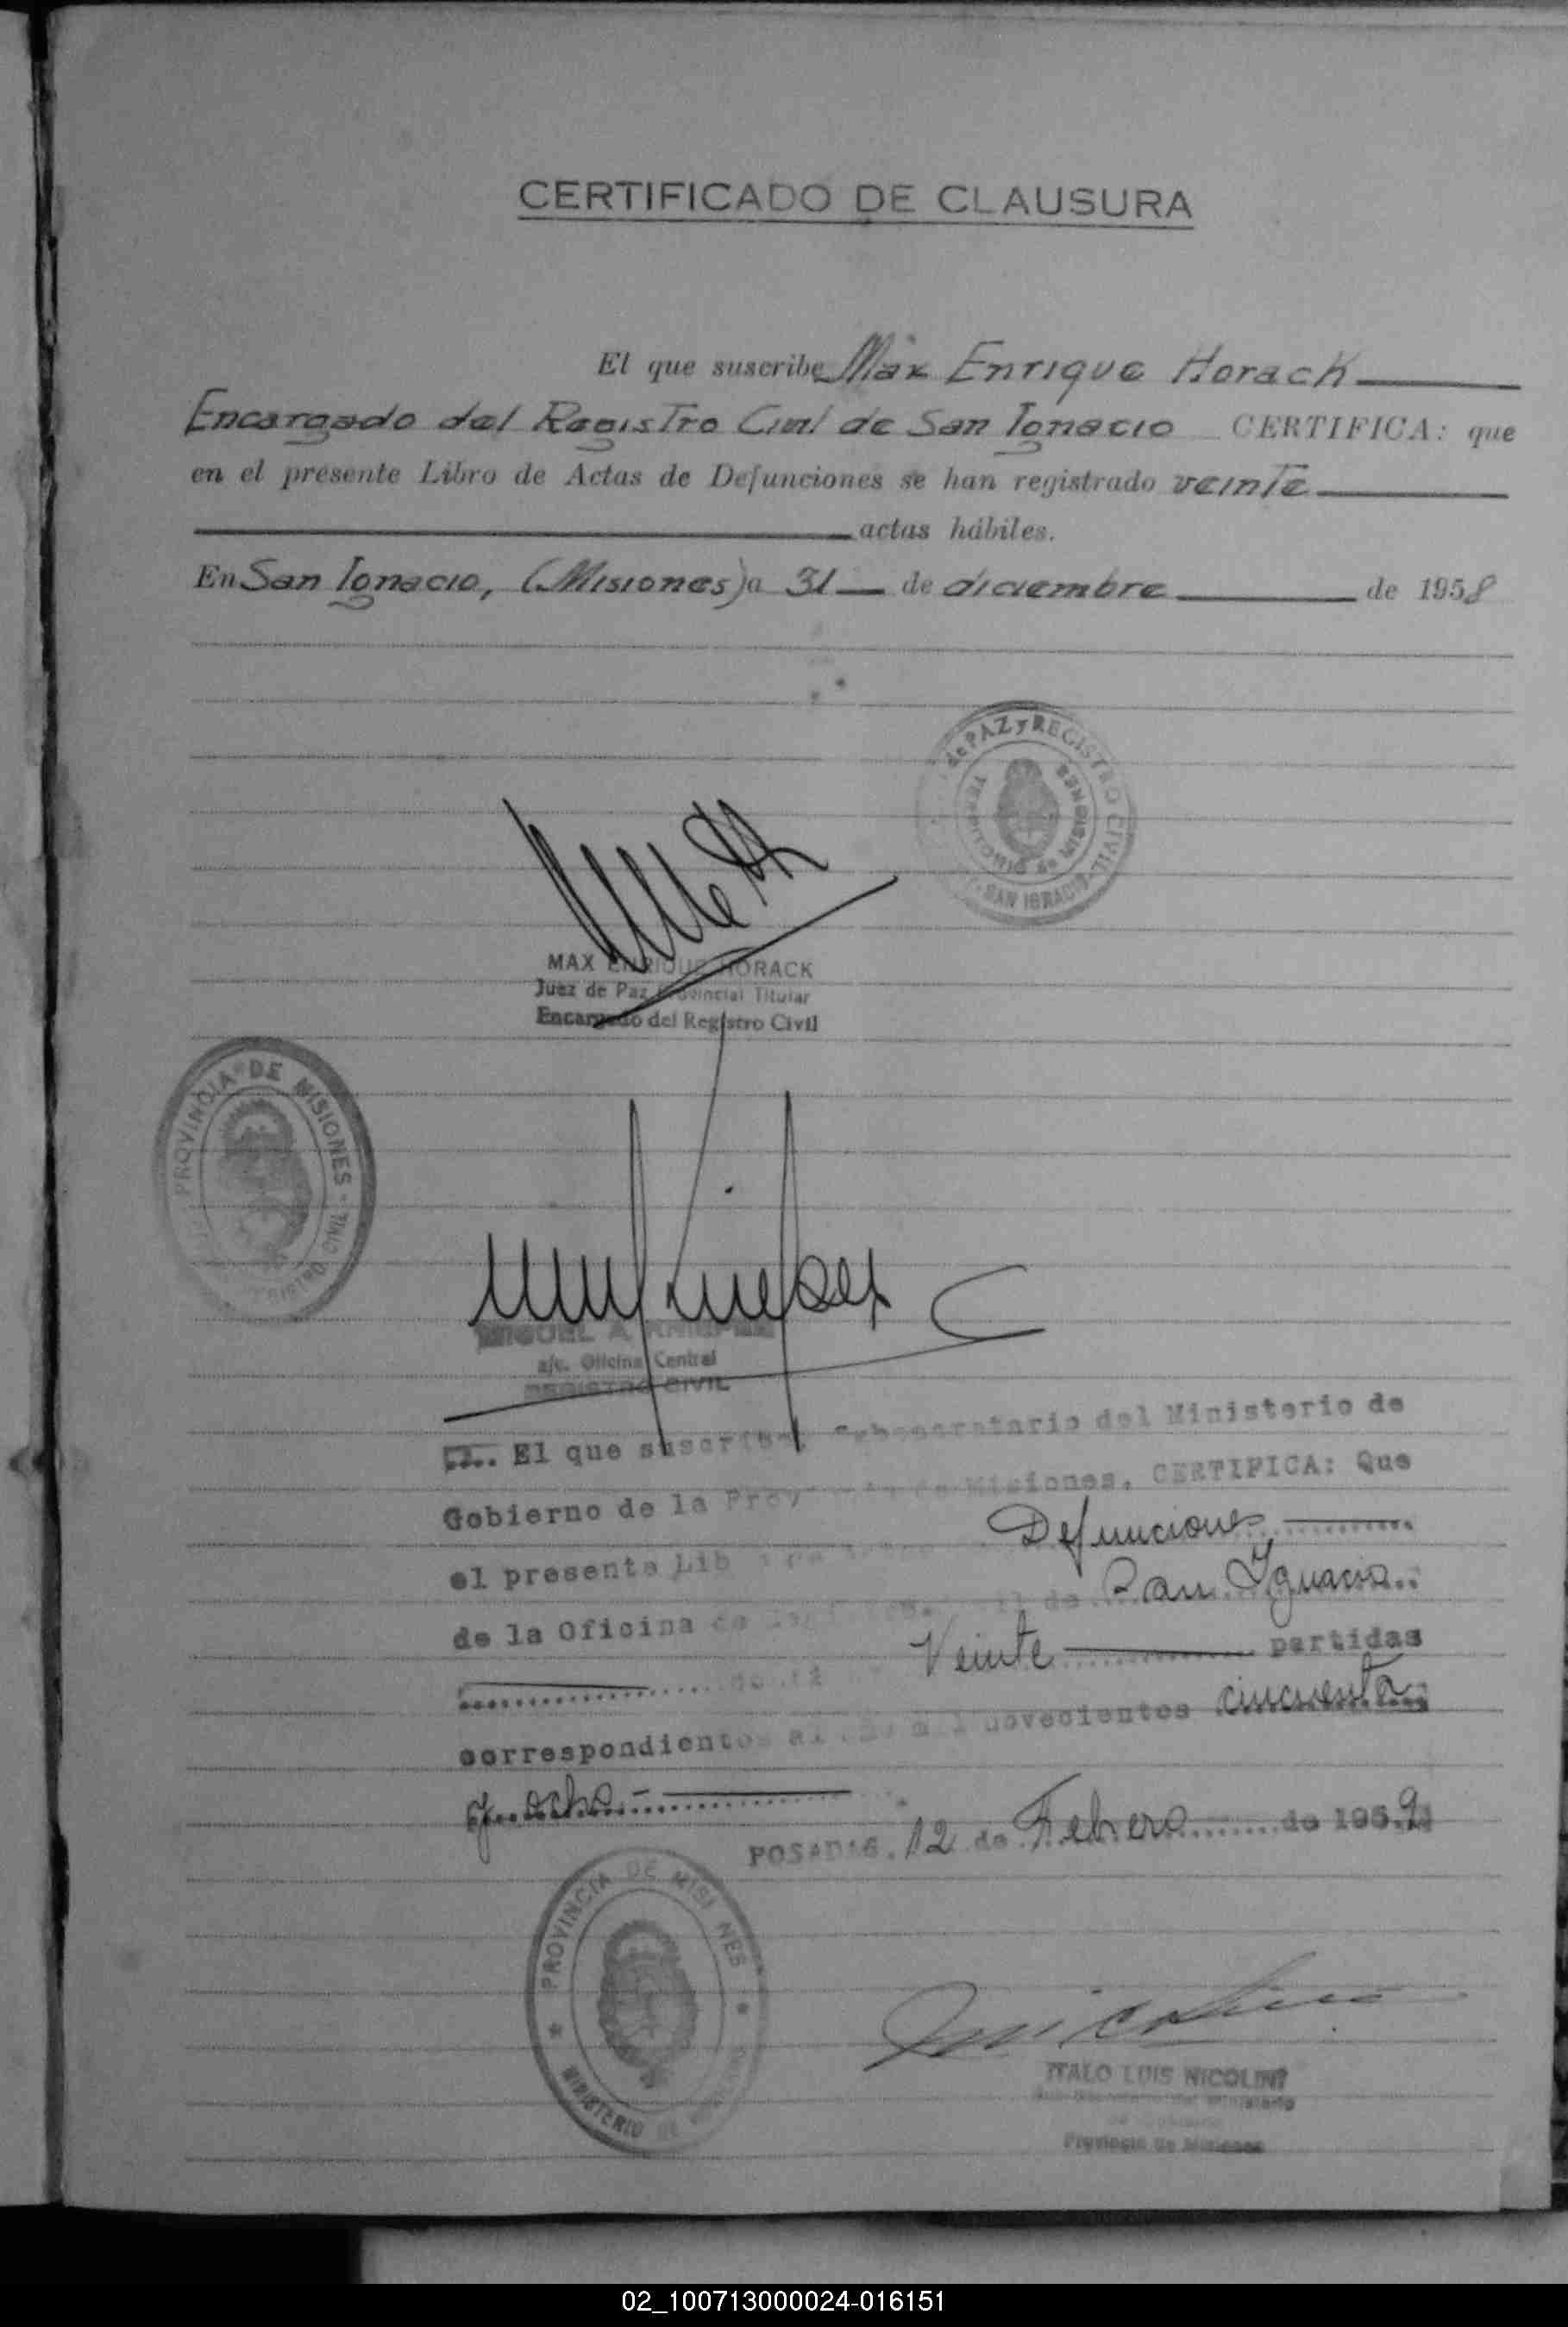 CERTIFICADO DE CLAUSURA
El que suscribe Max Enrique Horack
Encargado del Registro Civil de San Ignacio CERTIFICA: que
en el presente Libro de Actas de Defunciones se han registrado veinte
actas hábiles.
En San Ignacio, (Misiones) a 31 de diciembre de 1958
de PAZ y REGISTRO CIVIL
TERRITORIO de MISIONES
SAN IGNACIO
MAX ENRIQUE HORACK
Juez de Paz Provincial Titular
Encargado del Registro Civil
PROVINCIA DE MISIONES
CIVIL
MIGUEL A.
a/c. Oficina Central
REGISTRO CIVIL
El que suscribe, Subsecretario del Ministerio de
Gobierno de la Provincia de Misiones, CERTIFICA: Que
el presente Libro de Actas Defunciones
de la Oficina de San Ignacio
Veinte partidas
correspondientes al año mil novecientos cincuenta
y ocho.-
POSADAS, 12 de Febrero de 1959
PROVINCIA DE MISIONES
MINISTERIO DE GOBIERNO
ITALO LUIS NICOLINI
Provincia de Misiones
02_100713000024-016151